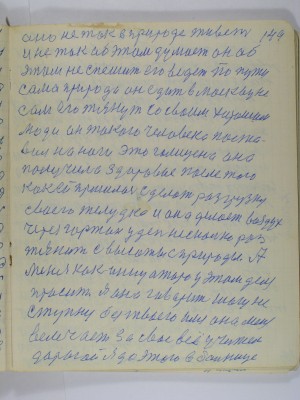 оно не так в природе живет 149
и не так об этом думает он об
этим не спешит его ведет по пути
сама природа он едит в москву не
сам его тянут со своим хорошим
люди он такого человека поста-
вил на ноги это голицина она
получила здоровие после того
как ей пришлось сделат разгрузку
своего желудка и она делает воздух
через гортан у ден несколко раз
тянит с высоты с природы А
меня как инициатору у этом деле
просит. она говорит я
ступну без твоего имя она мен
величает за свое всё учител
дарагой Я до этого в больнице